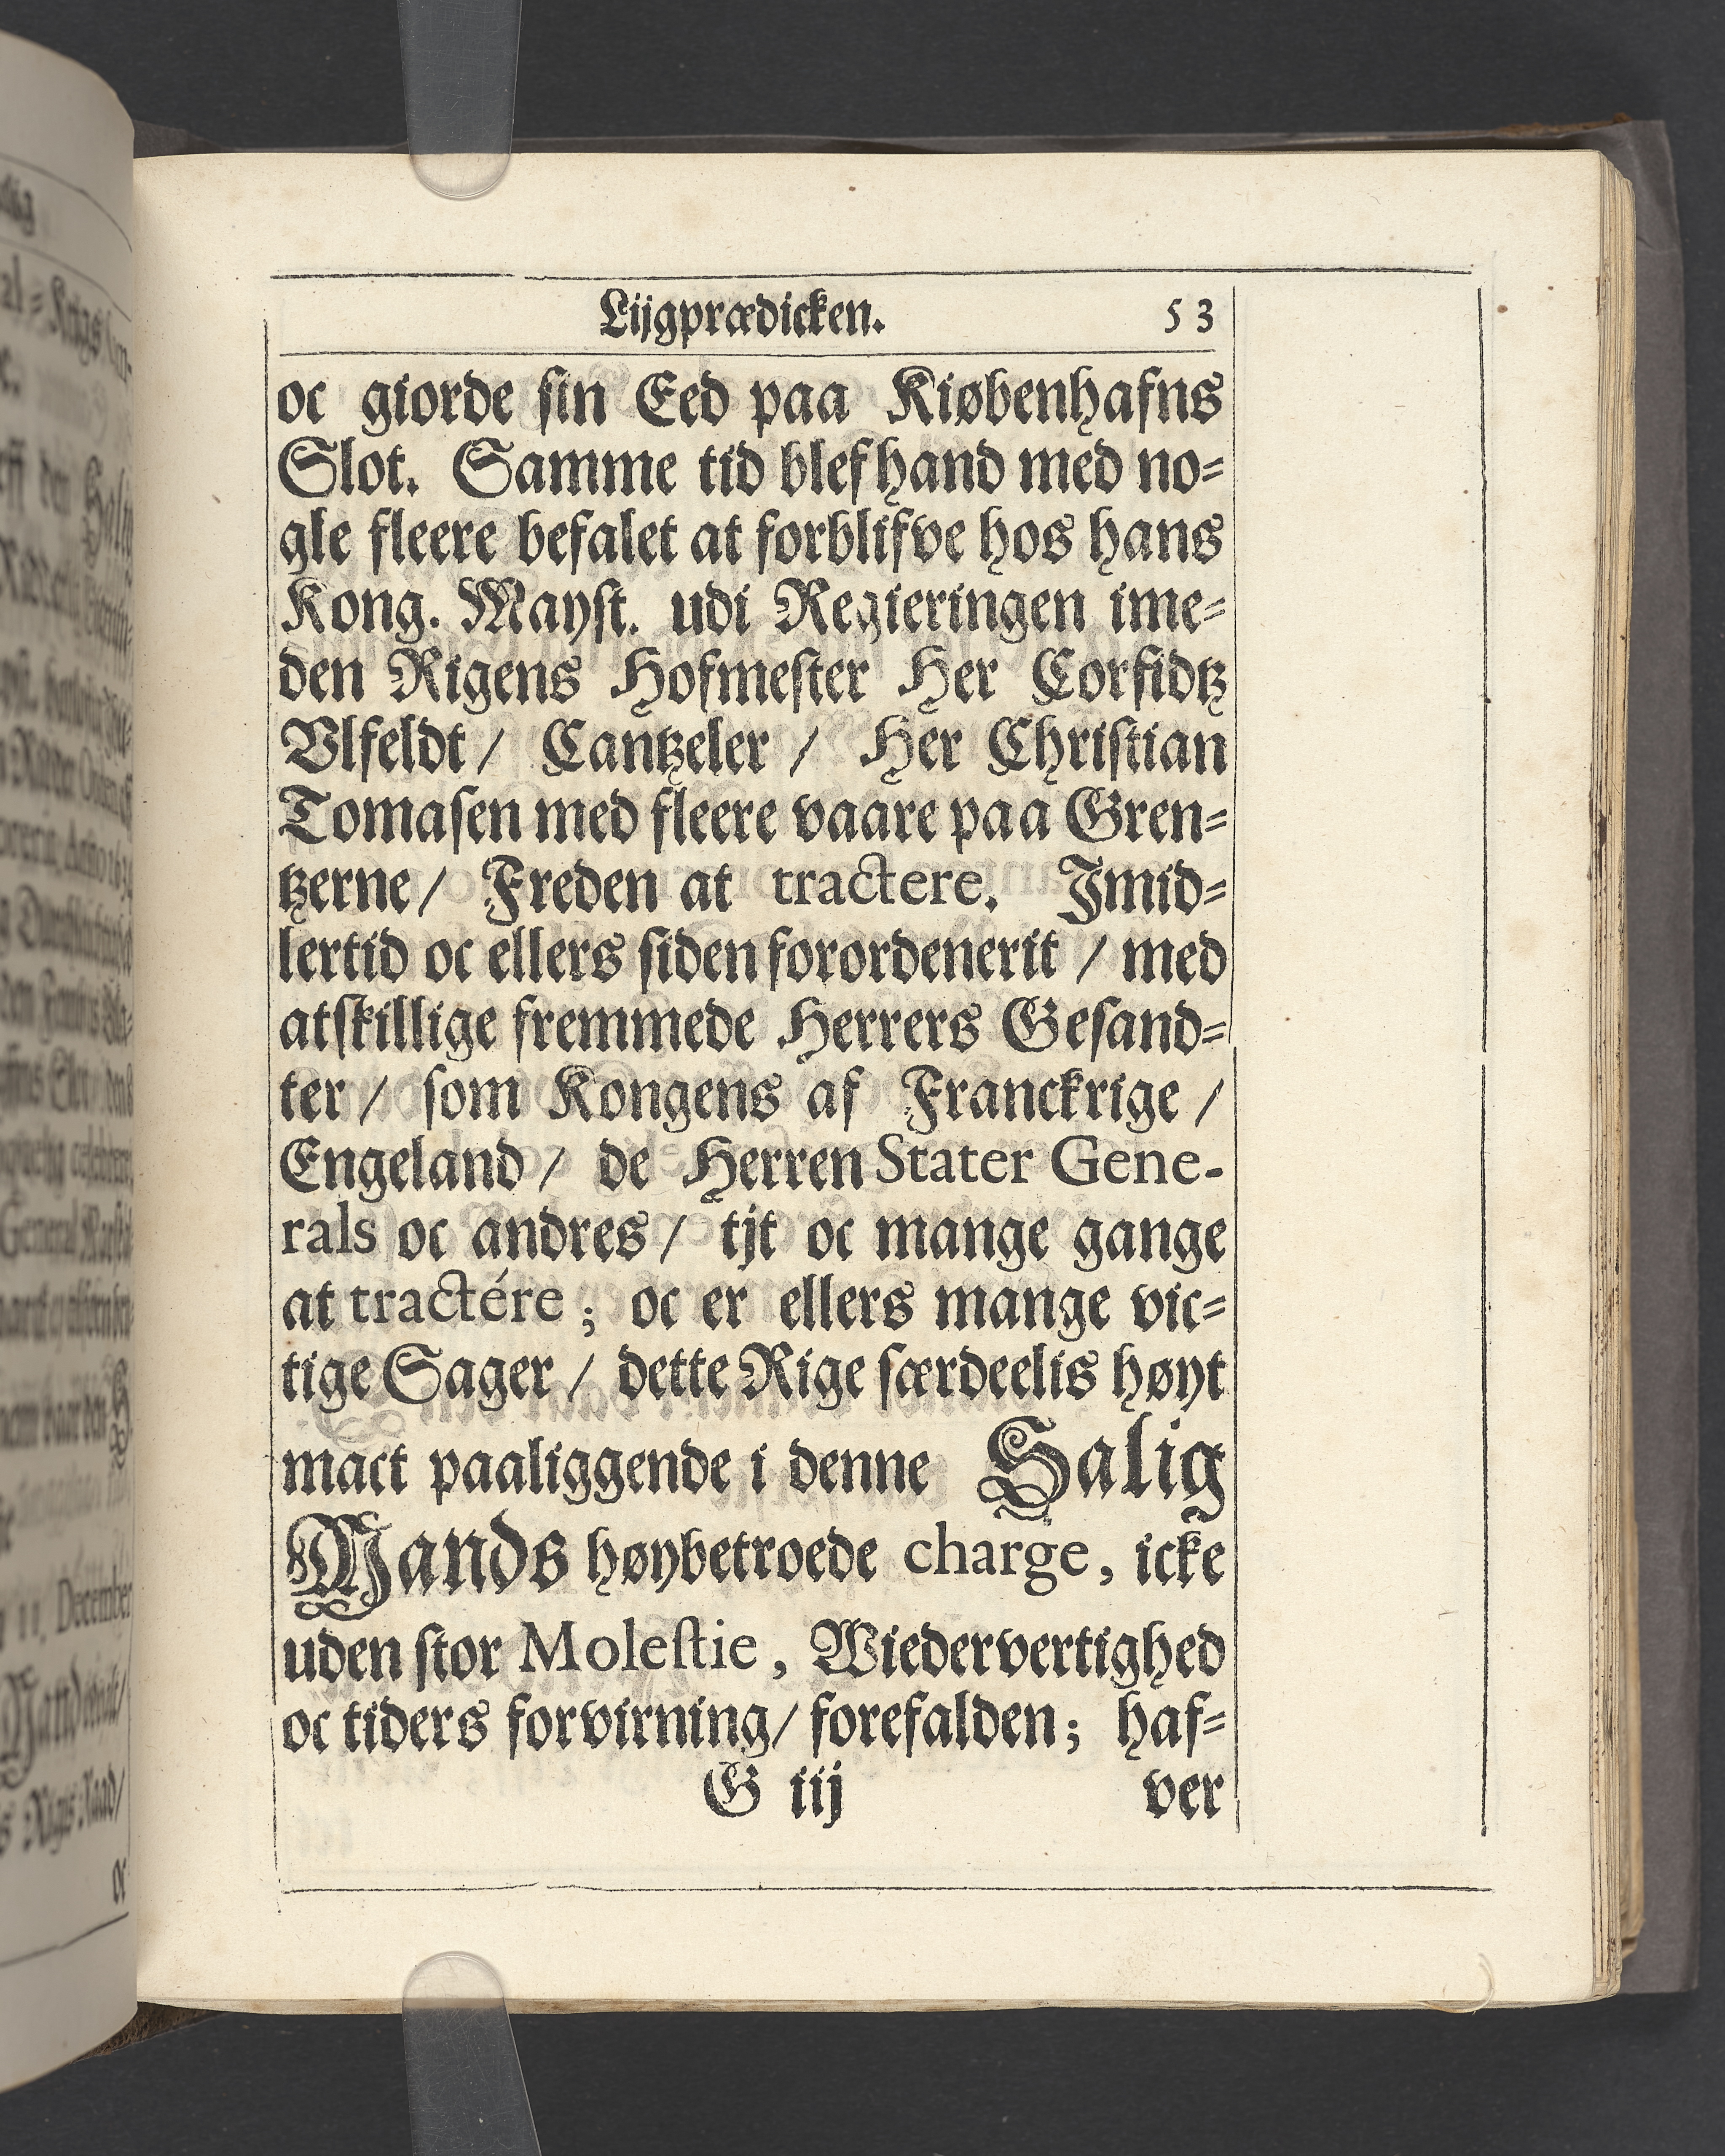 Lijgprædicken. 53
oc giorde sin Eed paa Kiøbenhafns
Slot. Samme tid blef hand med no-
gle fleere befalet at forblifve hos hans
Kong. Mayst. udi Regieringen ime-
den Rigens Hofmester Her Corfidtz
Vlfeldt / Cantzeler / Her Christian
Tomasen med fleere vaare paa Gren-
tzerne / Freden at tractere. Imid-
lertid oc ellers siden forordenerit / med
atskillige fremmede Herrers Gesand-
ter / som Kongens af Franckrige /
Engeland / de Herren Stater Gene-
rals oc andres / tjt oc mange gange
at tractére ; oc er ellers mange vic-
tige Sager / dette Rige særdeelis høyt
mact paaliggende i denne Salig
Mands høybetroede charge, icke
uden stor Molestie, Wiedervertighed
oc tiders forvirning / forefalden; haf-
G iij ver
11. December